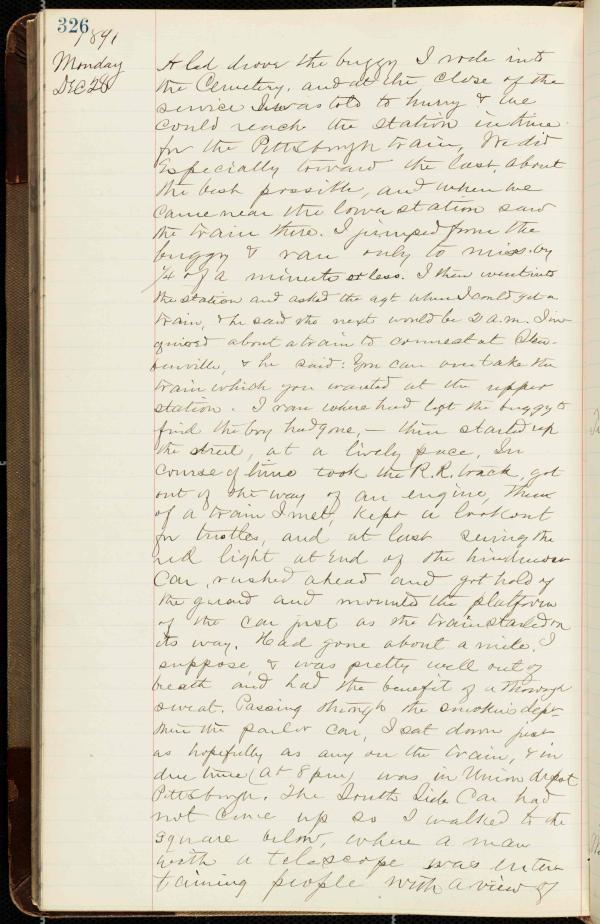 326
1891
Monday
DEC 28
A led drove the buggy I rode into
the Cemetery, and at the close of the
service I was told to hurry & we
could reach the station in time
for the Pittsburgh train, We did
Especially toward the last, about
the best possible, and when we
came near the lower station saw
the train there. I jumped from the
buggy & ran only to miss by
1/4 of a minute or less. I then went into
the station and asked the agt when I could get a
train, & he said the next would be 2 a.m. I in-
quired about a train to connect at Steu-
benville, & he said: You can overtake the
train which you wanted at the upper
station. I ran where had left the buggy to
find the boy had gone, — then started up
the street, at a lively pace, In
course of time took the R.R. track, got
out of the way of an engine, then
of a train I met, kept a lookout
for trestles, and at last seeing the
red light at End of the hindmost
Car, rushed ahead and got hold of
the guard and mounted the platform
of the car just as the train started on
its way. Had gone about a mile, I
suppose, & was pretty well out of
breath and had the benefit of a thorough
sweat. Passing through the smokin dept
then the parlor car, I sat down just
as hopefully as any on the train, & in
due time (at 8 pm) was in Union depot
Pittsburgh. The South Side Car had
not come up so I walked to the
square below, where a man
with a telescope was enter-
taining people with a view of